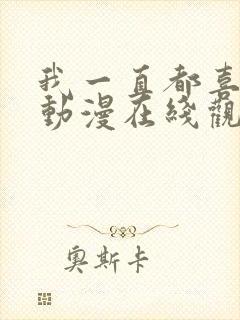 我一直都喜
動漫在綫觀
奥斯卡